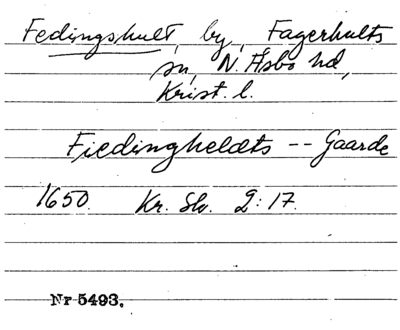 Fedingshult, by, Fagerhults
sn, N. Åsbo hd,
Krist. l.
Fiedingheldts -- Gaarde
1650. Kr. Sk. 2:17.
Nr 5493.